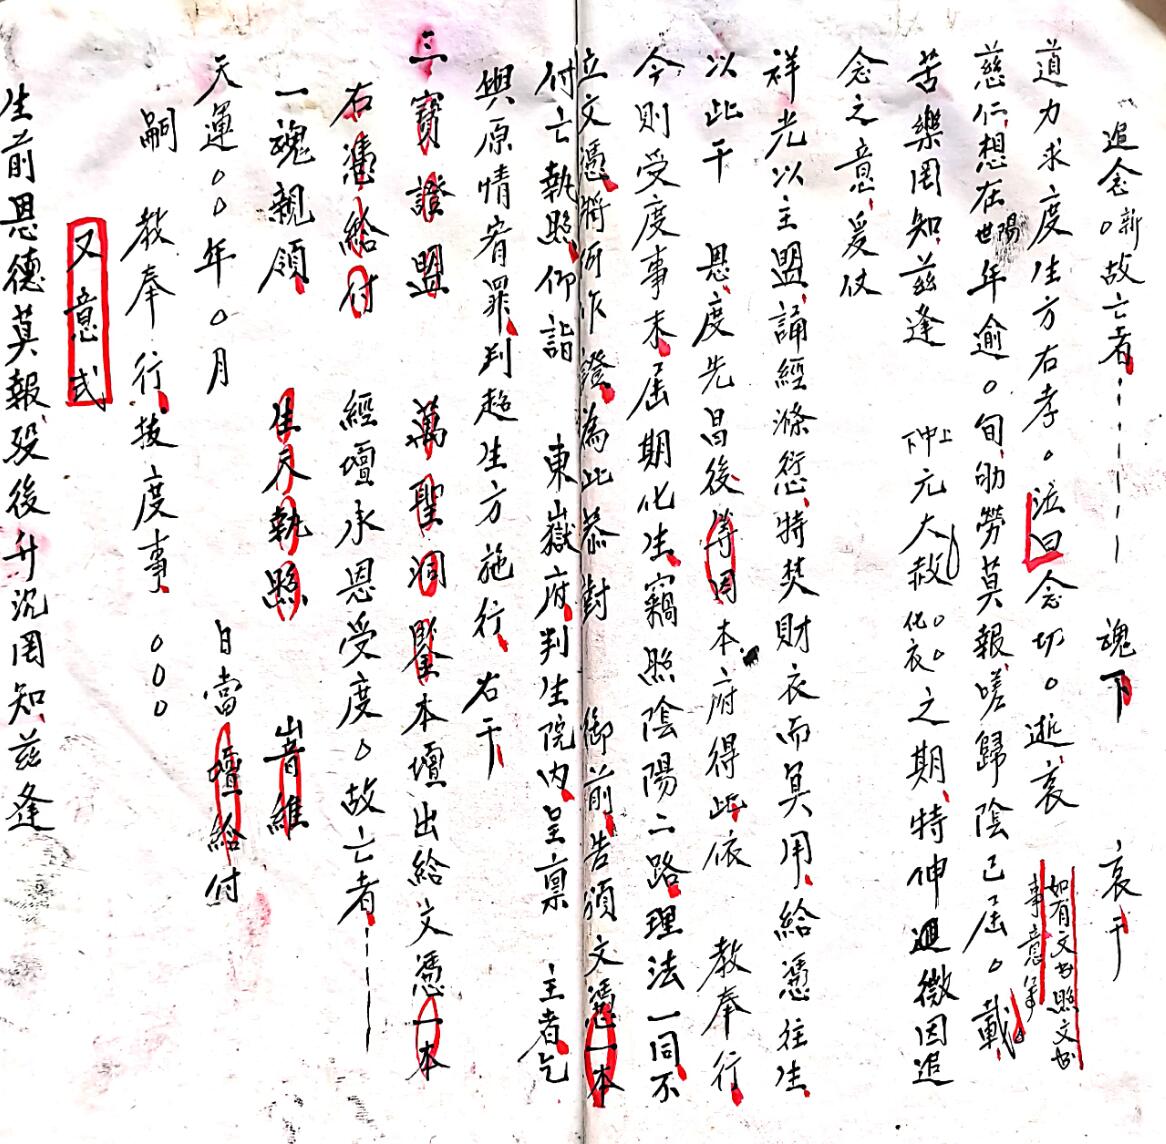 追念〇新故亡者 魂下 哀干
道力求度生方右孝〇泣曰念切〇逝哀
如有文书照文书
事意筆
慈仁想在陽世年逾〇旬劬勞莫報嗟歸陰已屆〇載
苦樂罔知兹逢 上中下元大赦〇〇化衣之期特伸追微因追
念之意爰仗
祥光以主盟誦經滌愆特焚財衣而冥用給憑往生
以此干 恩度先昌後等因本府得此依 教奉行
今則受度事末屆期化生竊照陰陽二路理法一同不
立文憑將何作證為此恭對 御前告頒文憑一本
付亡執照仰詣 東嶽府判生院內呈禀 主者乞
與原情宥罪判超生方施行右干
三寶證盟 萬聖洞鑒本壇出給文憑一本
右憑給付 經壇承恩受度〇故亡者
一魂親領 生天執照 峕維
天運〇〇年〇月 日當壇給付
嗣 教奉行拔度事 〇〇〇
又意式
生前恩德莫報殁後升沉罔知兹逢